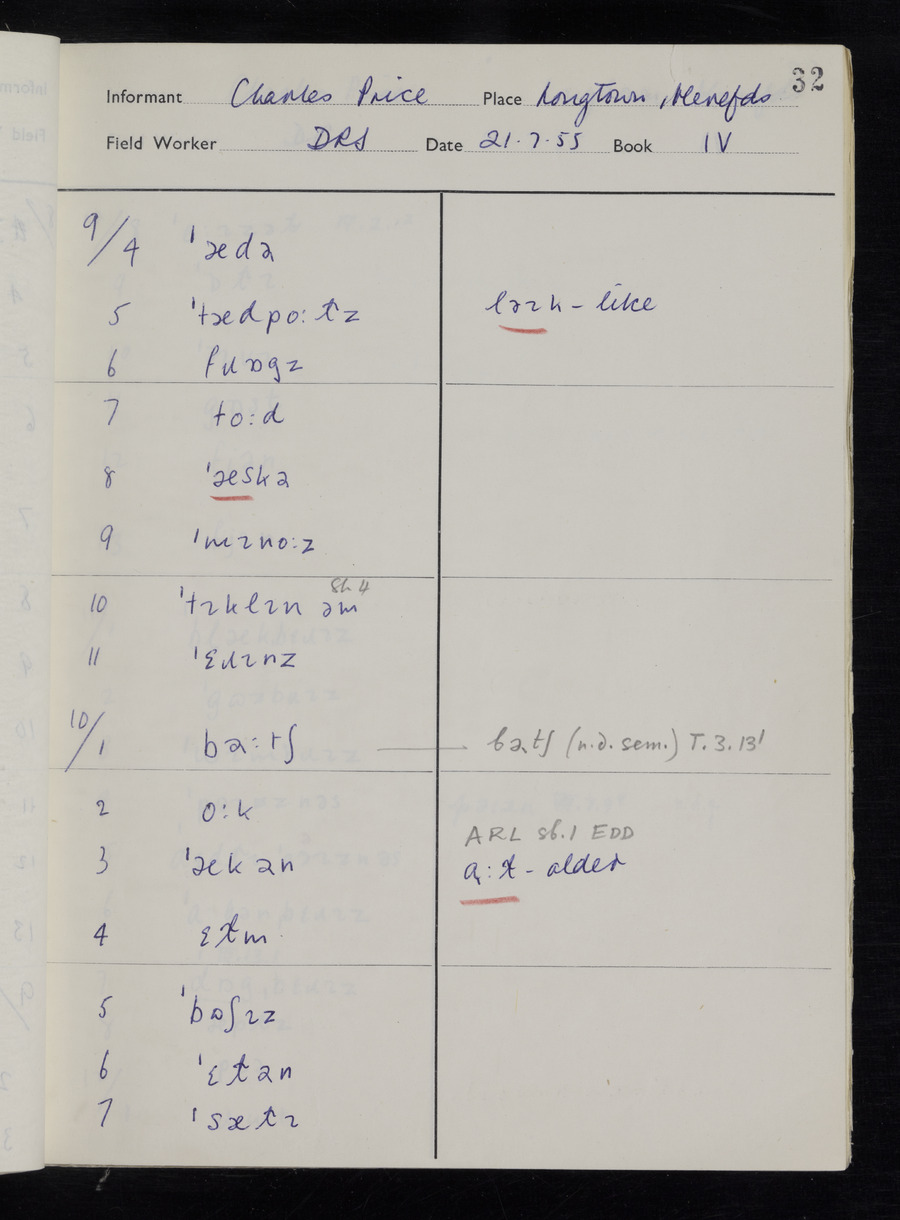 32
Informant Charles Price Place Longtown, Herefds
Field Worker DRS Date 21.7.55 Book IV
9/4 ˈædə
5 ˈtædpoːɫz lɪɪk - like
6 fɹɒgz
7 toːd
8 ˈæskə
9 ˈmɪnoːz
10 ˈtɪklɪn əm Sb 4
11 ˈɛɹɪnz
10/1 bəːtʃ bətʃ (n.d. sem.) T.3.13'
2 oːk
3 ˈækən ARL sb.1 EDD
aːɫ - alder
4 ɛɫm
5 ˈbʊʃɪz
6 ˈɛɫən
7 ˈsæɫɪ